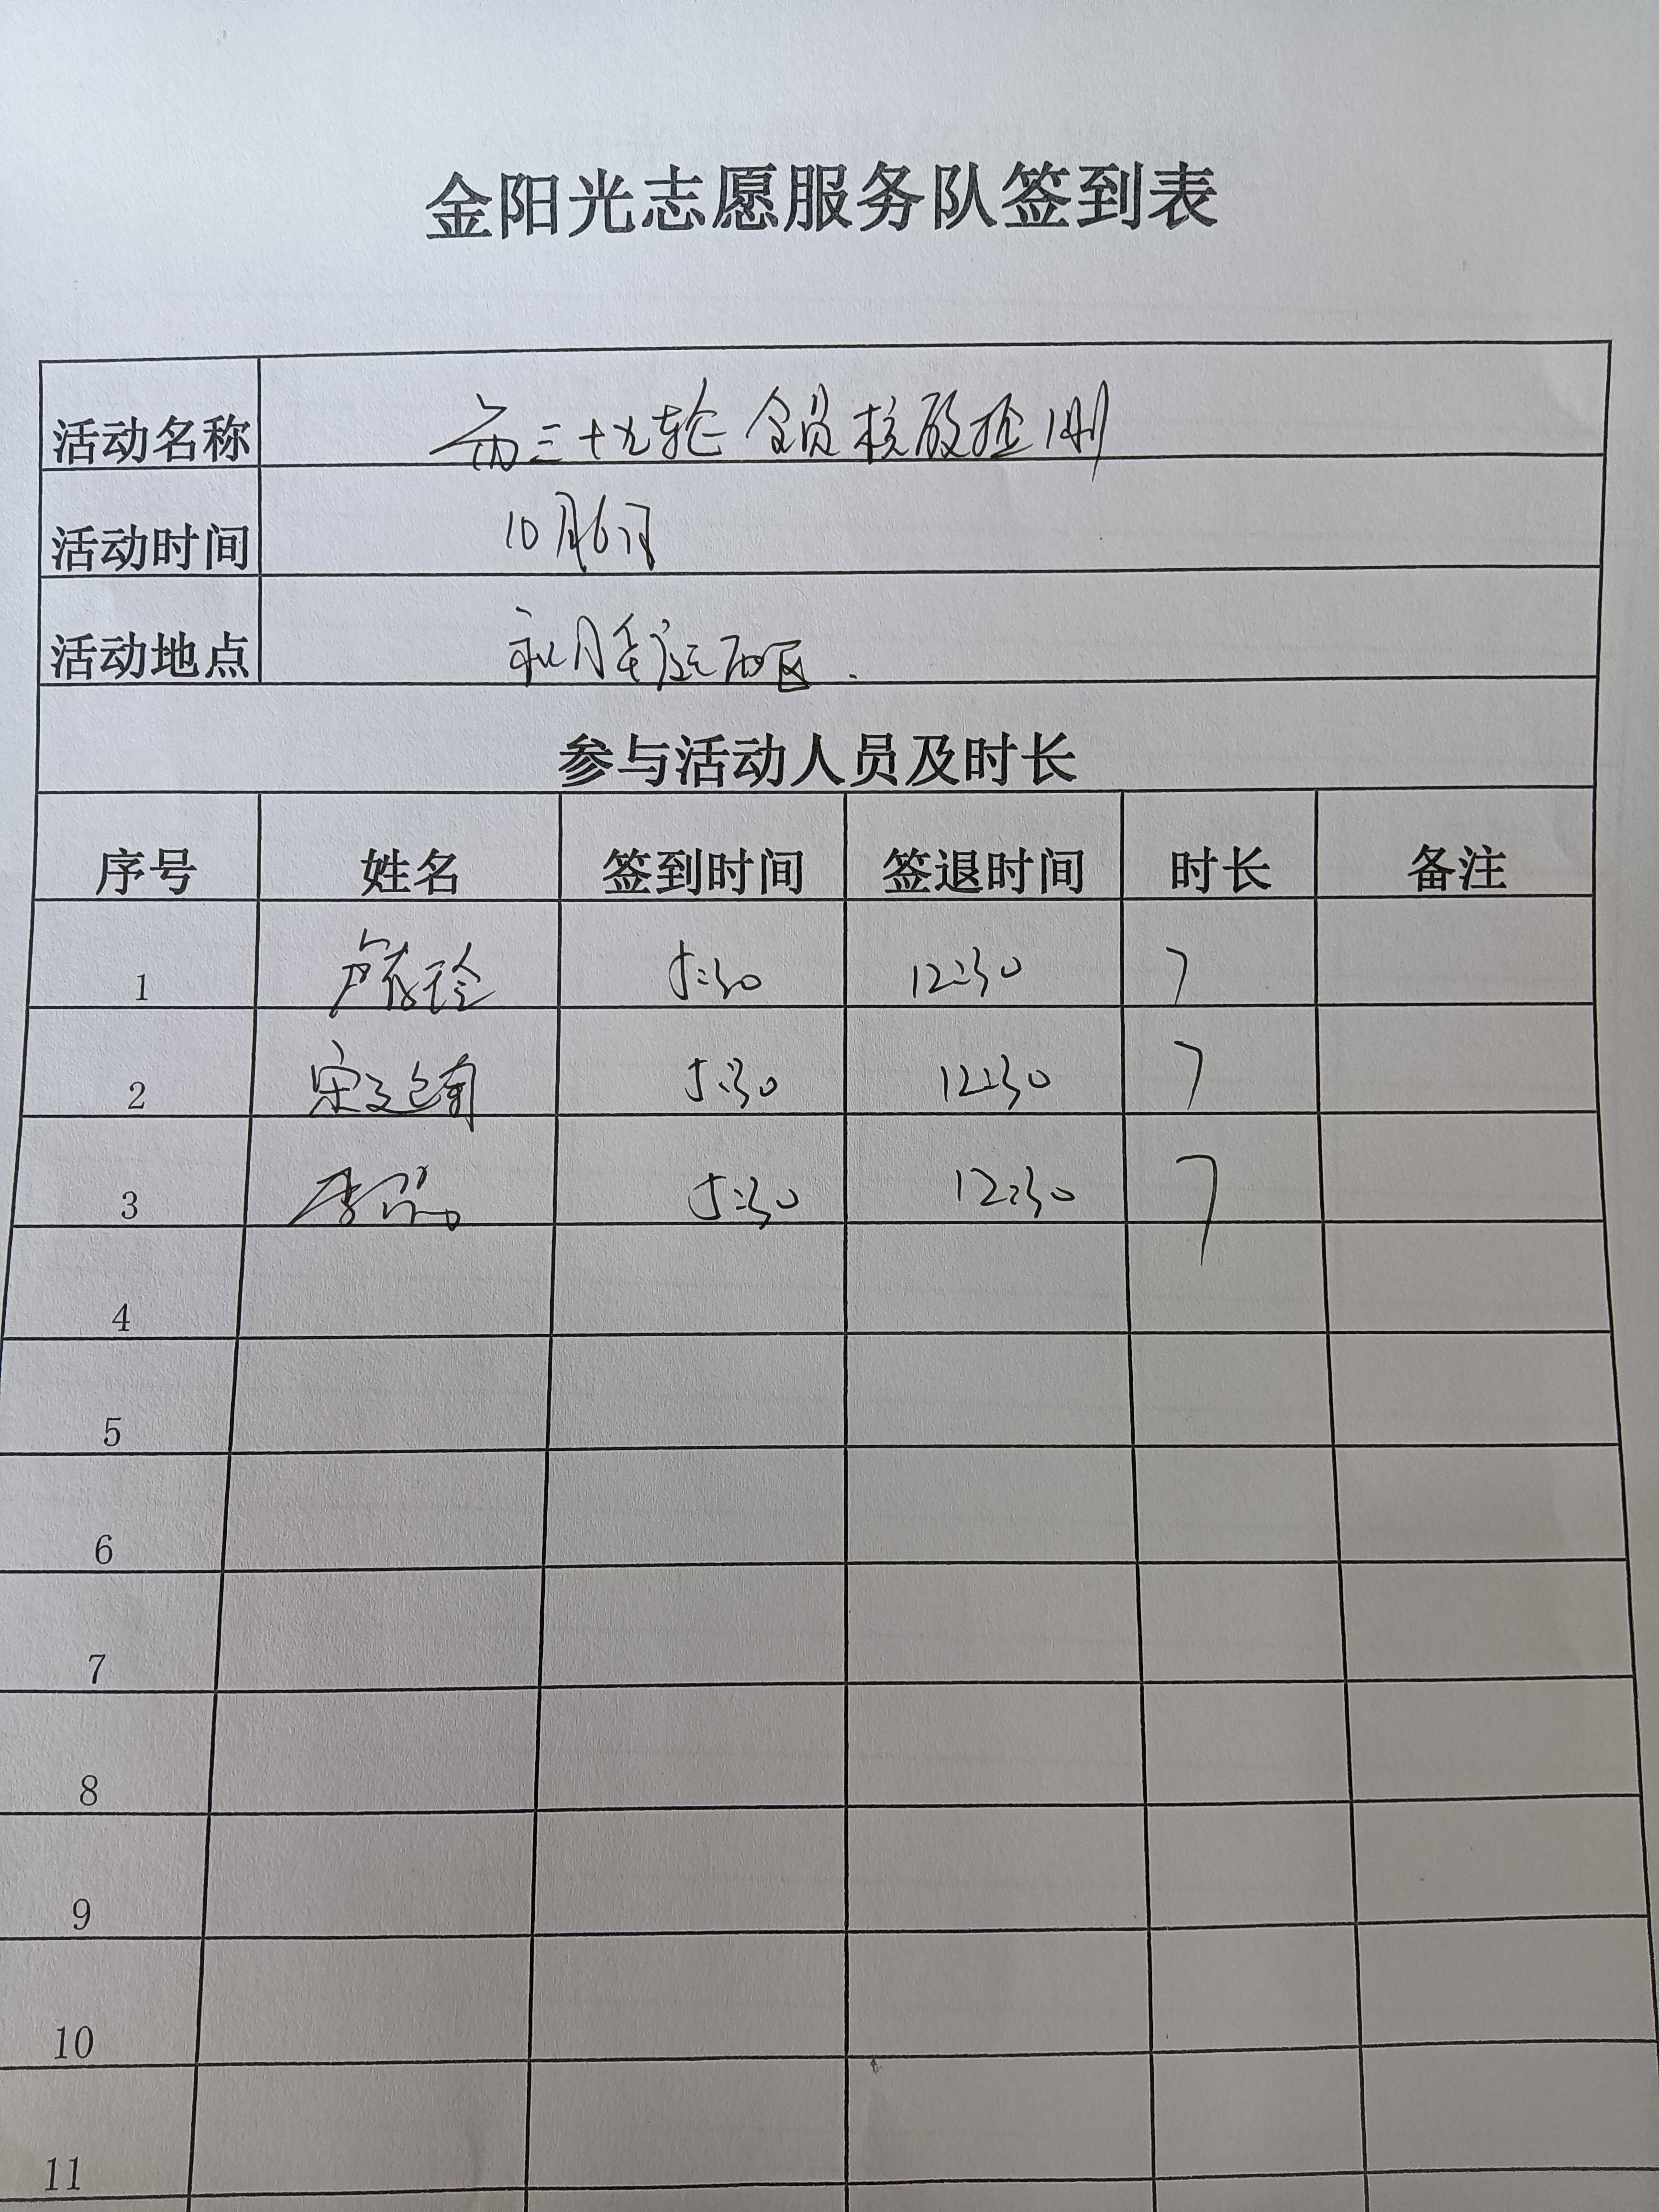 金阳光志愿服务队签到表
活动名称 第三十九轮全员核酸检测
活动时间 10月6日
活动地点 秋月 西区
参与活动人员及时长
序号 姓名 签到时间 签退时间 时长 备注
1 5:30 12:30 7
2 宋 5:30 12:30 7
3 李 5:30 12:30 7
4
5
6
7
8
9
10
11